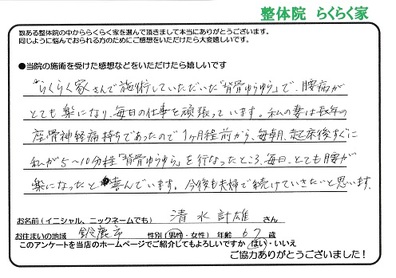 整体院 らくらく家
数ある整体院の中かららくらく家を選んで頂きまして本当にありがとうございます。
同じように悩んでおられる方のためにご感想をいただけたら大変嬉しいです。
●当院の施術を受けた感想などをいただけたら嬉しいです
"らくらく家さんで施術していただいた"背骨ゆうゆう"で、腰痛が
とても楽になり、毎日の仕事を頑張っています。私の妻は長年の
座骨神経痛持ちであったので1ヶ月程前から、毎朝、起床後すぐに
私が5〜10分程"背骨ゆうゆう"を行なったところ、毎日、とても腰が
楽になったと喜んでいます。今後も夫婦で続けていきたいと思います。
お名前(イニシャル、ニックネームでも) 清水計雄 さん
お住まいの地域 鈴鹿市 性別(男性・女性) 年齢 67 歳
このアンケートを当店のホームページでご紹介してもよろしいですか はい・いいえ
ご協力ありがとうございました!